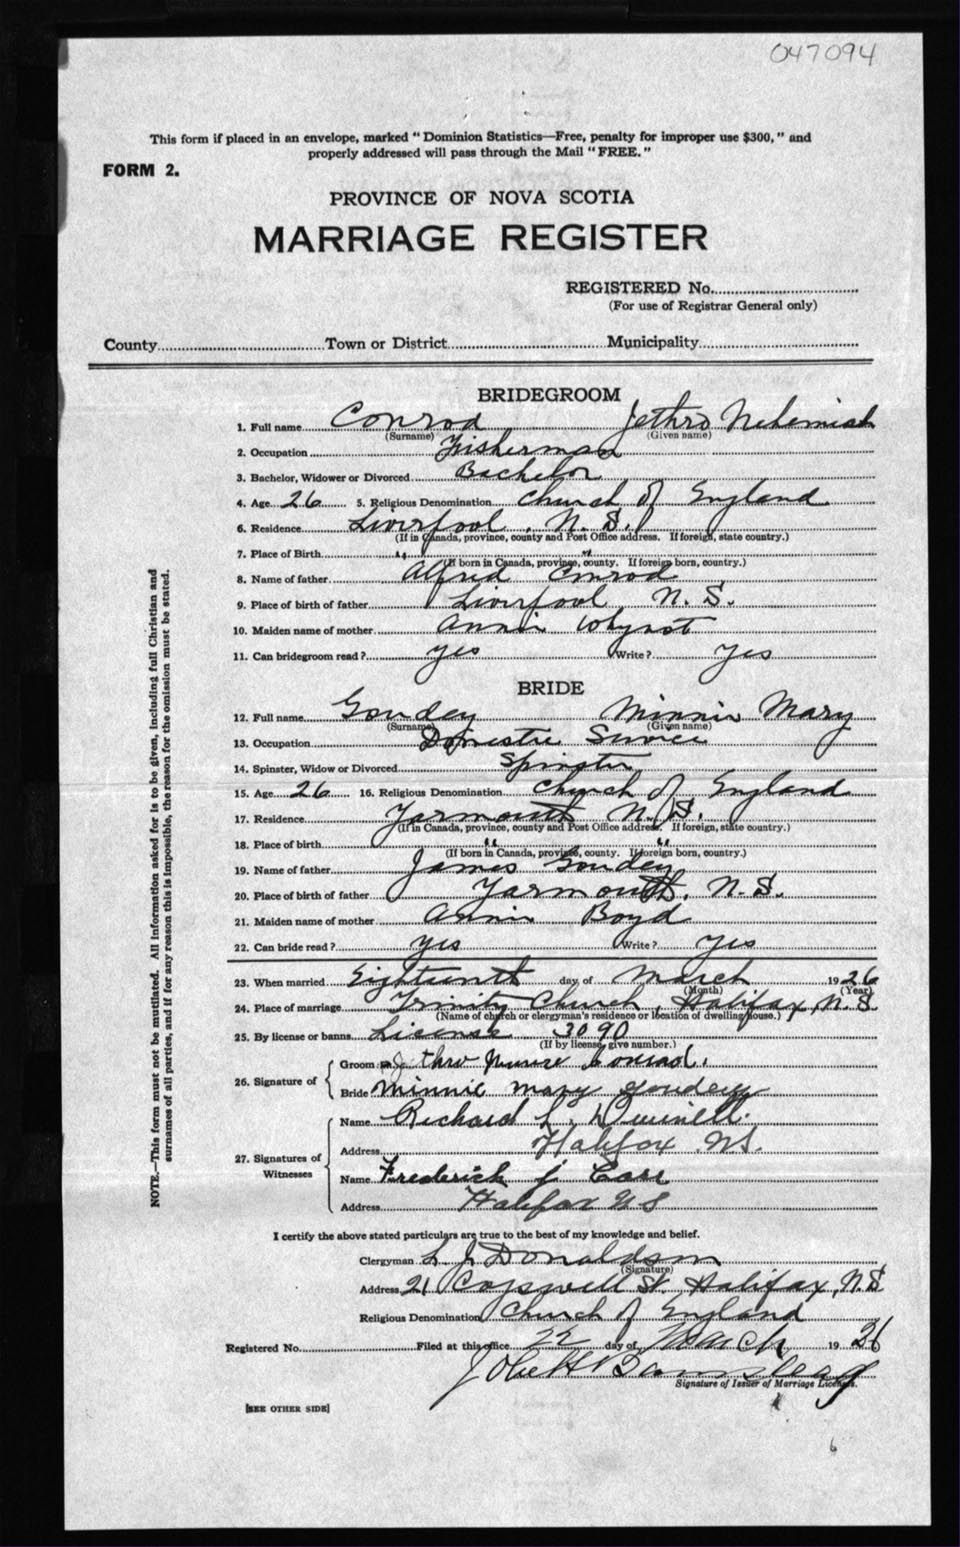 047094
This form if placed in an envelope, marked "Dominion Statistics—Free, penalty for improper use $300," and
properly addressed will pass through the Mail "FREE."
FORM 2.
PROVINCE OF NOVA SCOTIA
MARRIAGE REGISTER
REGISTERED No.
(For use of Registrar General only)
County Town or District Municipality
BRIDEGROOM
1. Full name Conrod Jethro Nehemiah
(Surname) (Given name)
2. Occupation Fisherman
3. Bachelor, Widower or Divorced Bachelor
4. Age 26 5. Religious Denomination Church of England
6. Residence Liverpool, N.S.
(If in Canada, province, county and Post Office address. If foreign, state country.)
7. Place of Birth " "
(If born in Canada, province, county. If foreign born, country.)
8. Name of father Alfred Conrod
9. Place of birth of father Liverpool N.S.
10. Maiden name of mother Annie Whynot
11. Can bridegroom read? yes Write? yes
BRIDE
12. Full name Goudey Minnie Mary
(Surname) (Given name)
13. Occupation Domestic Service
14. Spinster, Widow or Divorced Spinster
15. Age 26 16. Religious Denomination Church of England
17. Residence Yarmouth N.S.
(If in Canada, province, county and Post Office address. If foreign, state country.)
18. Place of birth " "
(If born in Canada, province, county. If foreign born, country.)
19. Name of father James Goudey
20. Place of birth of father Yarmouth, N.S.
21. Maiden name of mother Annie Boyd
22. Can bride read? yes Write? yes
23. When married Eighteenth day of March 1926
(Month) (Year)
24. Place of marriage Trinity Church, Halifax, N.S.
(Name of church or clergyman's residence or location of dwelling house.)
25. By license or banns License 3090
(If by license, give number.)
26. Signature of
Groom Jethro Conrad.
Bride Minnie mary goudey
27. Signatures of Witnesses
Name Richard L.
Address Halifax N.S.
Name Frederick J
Address Halifax N S
I certify the above stated particulars are true to the best of my knowledge and belief.
Clergyman L. J. Donaldson
(Signature)
Address 21 Cogswell St. Halifax, N.S
Religious Denomination Church of England
Registered No. Filed at this office 22 day of March 1926
Signature of Issuer of Marriage Licenses.
[SEE OTHER SIDE]
6
NOTE.—This form must not be mutilated. All information asked for is to be given, including full Christian and
surnames of all parties, and if for any reason this is impossible, the reason for the omission must be stated.